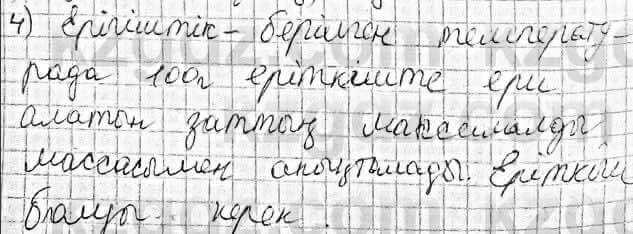 4) Ерігіштік - берілген температу-
рада 100г еріткіште ери
алатын заттың максималды
массасымен анықталады. Еріткіш
болуы керек.